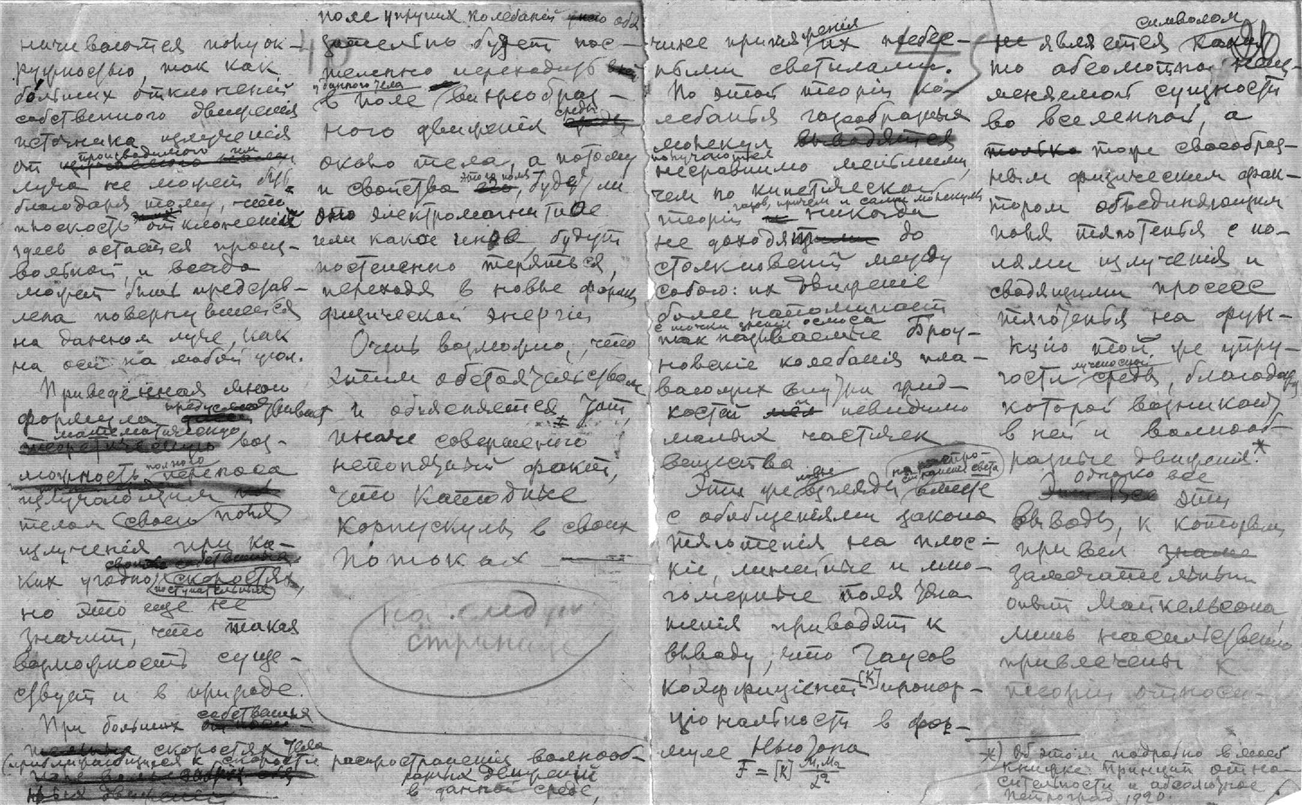 ничиваются полуок-
ружностью, так как
больших отклонений
собственного движения
источника излучения
от производимого им
луча не может быть
благодаря тому, что
плоскость отклонений
здесь остается произ-
вольной, и всегда
может быть представ-
лена повернувшейся
на данном луче, как
на оси на любой угол.
Приведенная мною
формула
математическую воз-
можность полного переноса
излучающим
телом своего поля
излучения при ка-
ких угодно скоростях
поступательных
но это еще не
значит, что такая
возможность суще-
ствует и в природе.
При больших собственных
скоростях тела
(приближающихся к скорости
поле упругих колебаний обя
зательно будет пос-
тепенно переходить
у данного тела
в поле винтообраз-
ного движения среды
около тела, а потому
и свойства этого поля, будет ли
это электромагнитное
или какое иное, будут
постепенно теряться,
переходя в новые формы
физической энергии
Очень возможно, что
этим обстоятельством
и объясняется тот
иначе совершенно
непонятный факт,
что катодные
корпускулы в своих
потоках
На следующ.
странице
распространения волнооб-
разных движений
в данной среде,
чине притяжения их небес-
ными светилами.
По этой теории ко-
лебанья газообразных
молекул
получаются
несравнимо меньшими,
чем по кинетической
газов, причем и самые молекулы
теории никогда
не доходят до
столкновений между
собою: их движение
более напоминает
с точки зрения осмоса
так называемые Броу-
новские колебания пла-
вающих внутри жид-
костей невидимо
малых частичек
вещества
Эти же новые взгляды вместе
с обобщениями закона
тяготения на плос-
кие, линейные и мно-
гомерные поля тяго-
тения приводят к
выводу, что Гаусов
коэффициент [K] пропор-
циональности в фор-
муле Ньютона
F = [K] M₁M₂/D²
символом
не является
то абсолютной неиз-
меняемой сущности
во вселенной, а
только тоже своеобраз-
ным физическим фак-
тором объединяющим
поля тяготенья с по-
лями излучения и
сводящими процесс
тяготенья на функ-
цию той же упру-
гости лучистой среды, благодаря
которой возникают
в ней и волнооб-
разные движения.*
Однако все эти
выводы, к которым
привел
замечательный
опыт Майкельсона,
лишь насильственно
привлечены к
теории относи-
*) Об этом подробно в моей
книжке Принцип отно-
сительности и абсолютное
Петроград 1920.